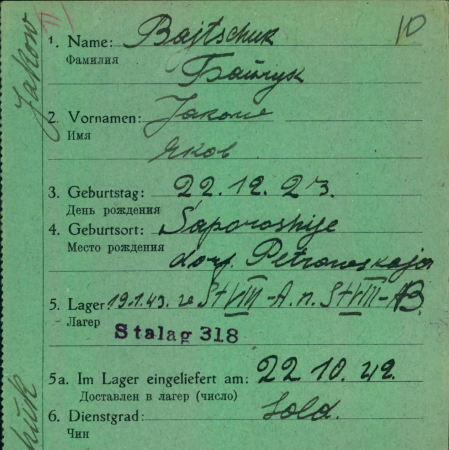 10
Jakow
1. Name: Bajtschuk
Фамилия Байчук
2. Vornamen: Jakow
Имя
Яков
3. Geburtstag: 22.12.23.
День рождения
4. Geburtsort: Saporoshije
Место рождения dorf. Petrowskaja
5. Lager 19.1.43. St VIII-A. n. St VIII-B.
Лагер
Stalag 318
5a. Im Lager eingeliefert am: 22 10. 42.
Доставлен в лагер (число)
6. Dienstgrad: Sold.
Чин